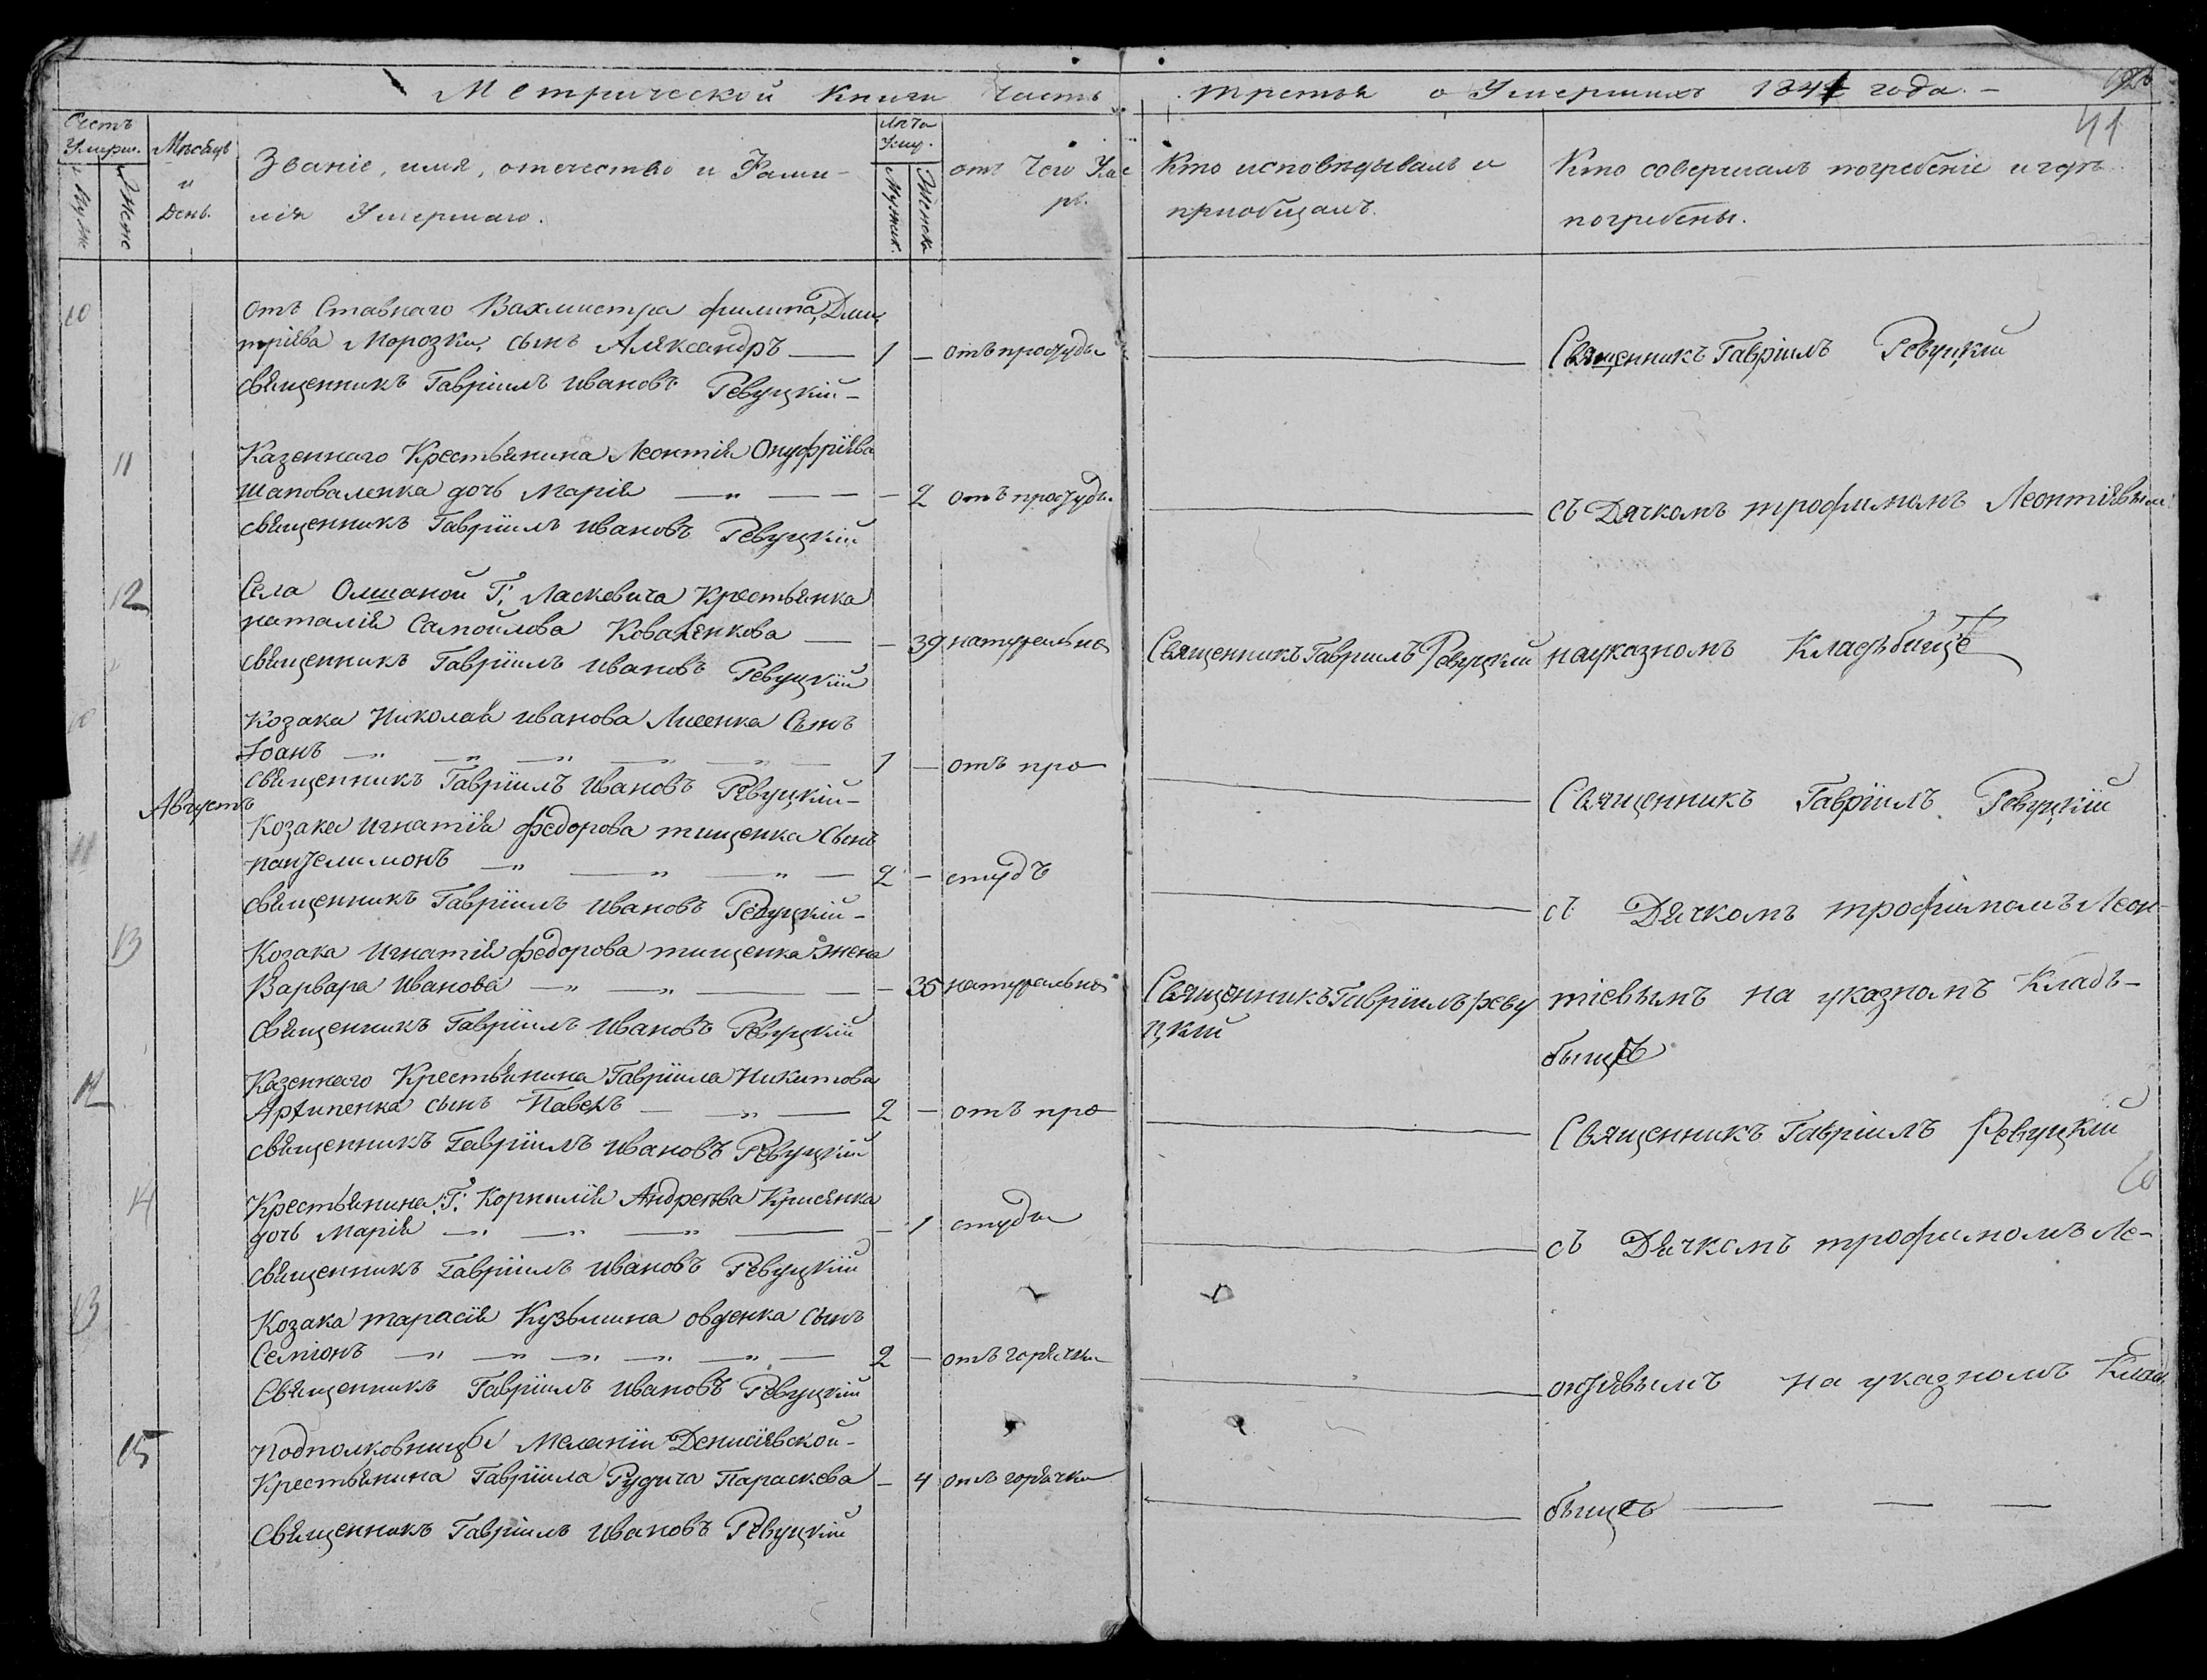 Метрической Книги Часть третья о Умершихъ 1841 года.
41
Счетъ Умерш.
Мужс
Женс
Мѣсяцъ и День.
Званіе, имя, отечество и Фами-
лія Умершаго.
Лѣта Умер.
Мужск.
Женск
отъ Чего Уме
ръ.
Кто исповѣдывалъ и
приобщалъ.
Кто совершалъ погребеніе и гдѣ
погребены.
10
отъ Ставнаго Вахмистра филипа Дми
тріева Морозки, сынъ Александръ — 1 — отъ простуды — Священникъ Гавріилъ Ревуцкій
священникъ Гавріилъ Ивановъ Ревуцкій —
11 Казеннаго Крестьянина Леонтія Онуфріева
шаповаленка дочь Марія — „ — — — 2 отъ простуды — съ Дячкомъ трофимомъ Леонтіевымъ
священникъ Гавріилъ Ивановъ Ревуцкій
12 Села Ольшаной Г: Ласкевича Крестьянка
наталія Самойлова Коваленкова — — 39 натурально Священникъ Гавріилъ Ревуцкій на указномъ Кладьбищѣ
священникъ Гавріилъ Ивановъ Ревуцкій
10 Козака Николая Иванова Лисенка Сынъ
Іоанъ — „ — „ — „ — „ — „ — 1 — отъ про — Священникъ Гавріилъ Ревуцкій
священникъ Гавріилъ Ивановъ Ревуцкій —
Августъ
11 Козака Игнатія федорова тищенка Сынъ
пантелимонъ — „ — „ — „ — 2 — студъ — съ Дячкомъ трофимомъ Леон-
священникъ Гавріилъ Ивановъ Ревуцкій —
13 Козака Игнатія федорова тищенка жена
Варвара Иванова — „ — „ — — 35 натурально Священникъ Гавріилъ Реву тіевымъ на указномъ Кладь-
цкій
Священникъ Гавріилъ Ивановъ Ревуцкій
быщѣ
12 Казеннаго Крестьянина Гавріила Никитова
Архипенка сынъ Павелъ — „ — 2 — отъ про — Священникъ Гавріилъ Ревуцкій
священникъ Гавріилъ Ивановъ Ревуцкій
14 Крестьянина Г: Корнилія Андреева Крисенка
дочь Марія — „ — „ — „ — — 1 студы — съ Дячкомъ трофимомъ Ле-
священникъ Гавріилъ Ивановъ Ревуцкій
13 Козака тарасія Кузьмина овденка сынъ
Семіонъ — „ — „ — „ — „ — „ — 2 — отъ горячки — онтіевымъ на указномъ Кладь
Священникъ Гавріилъ Ивановъ Ревуцкій
15 Подполковницы Меланіи Денисіевской —
Крестьянина Гавріила Рудича Параскева — 4 отъ горячки — быщѣ — — —
священникъ Гавріилъ Ивановъ Ревуцкій